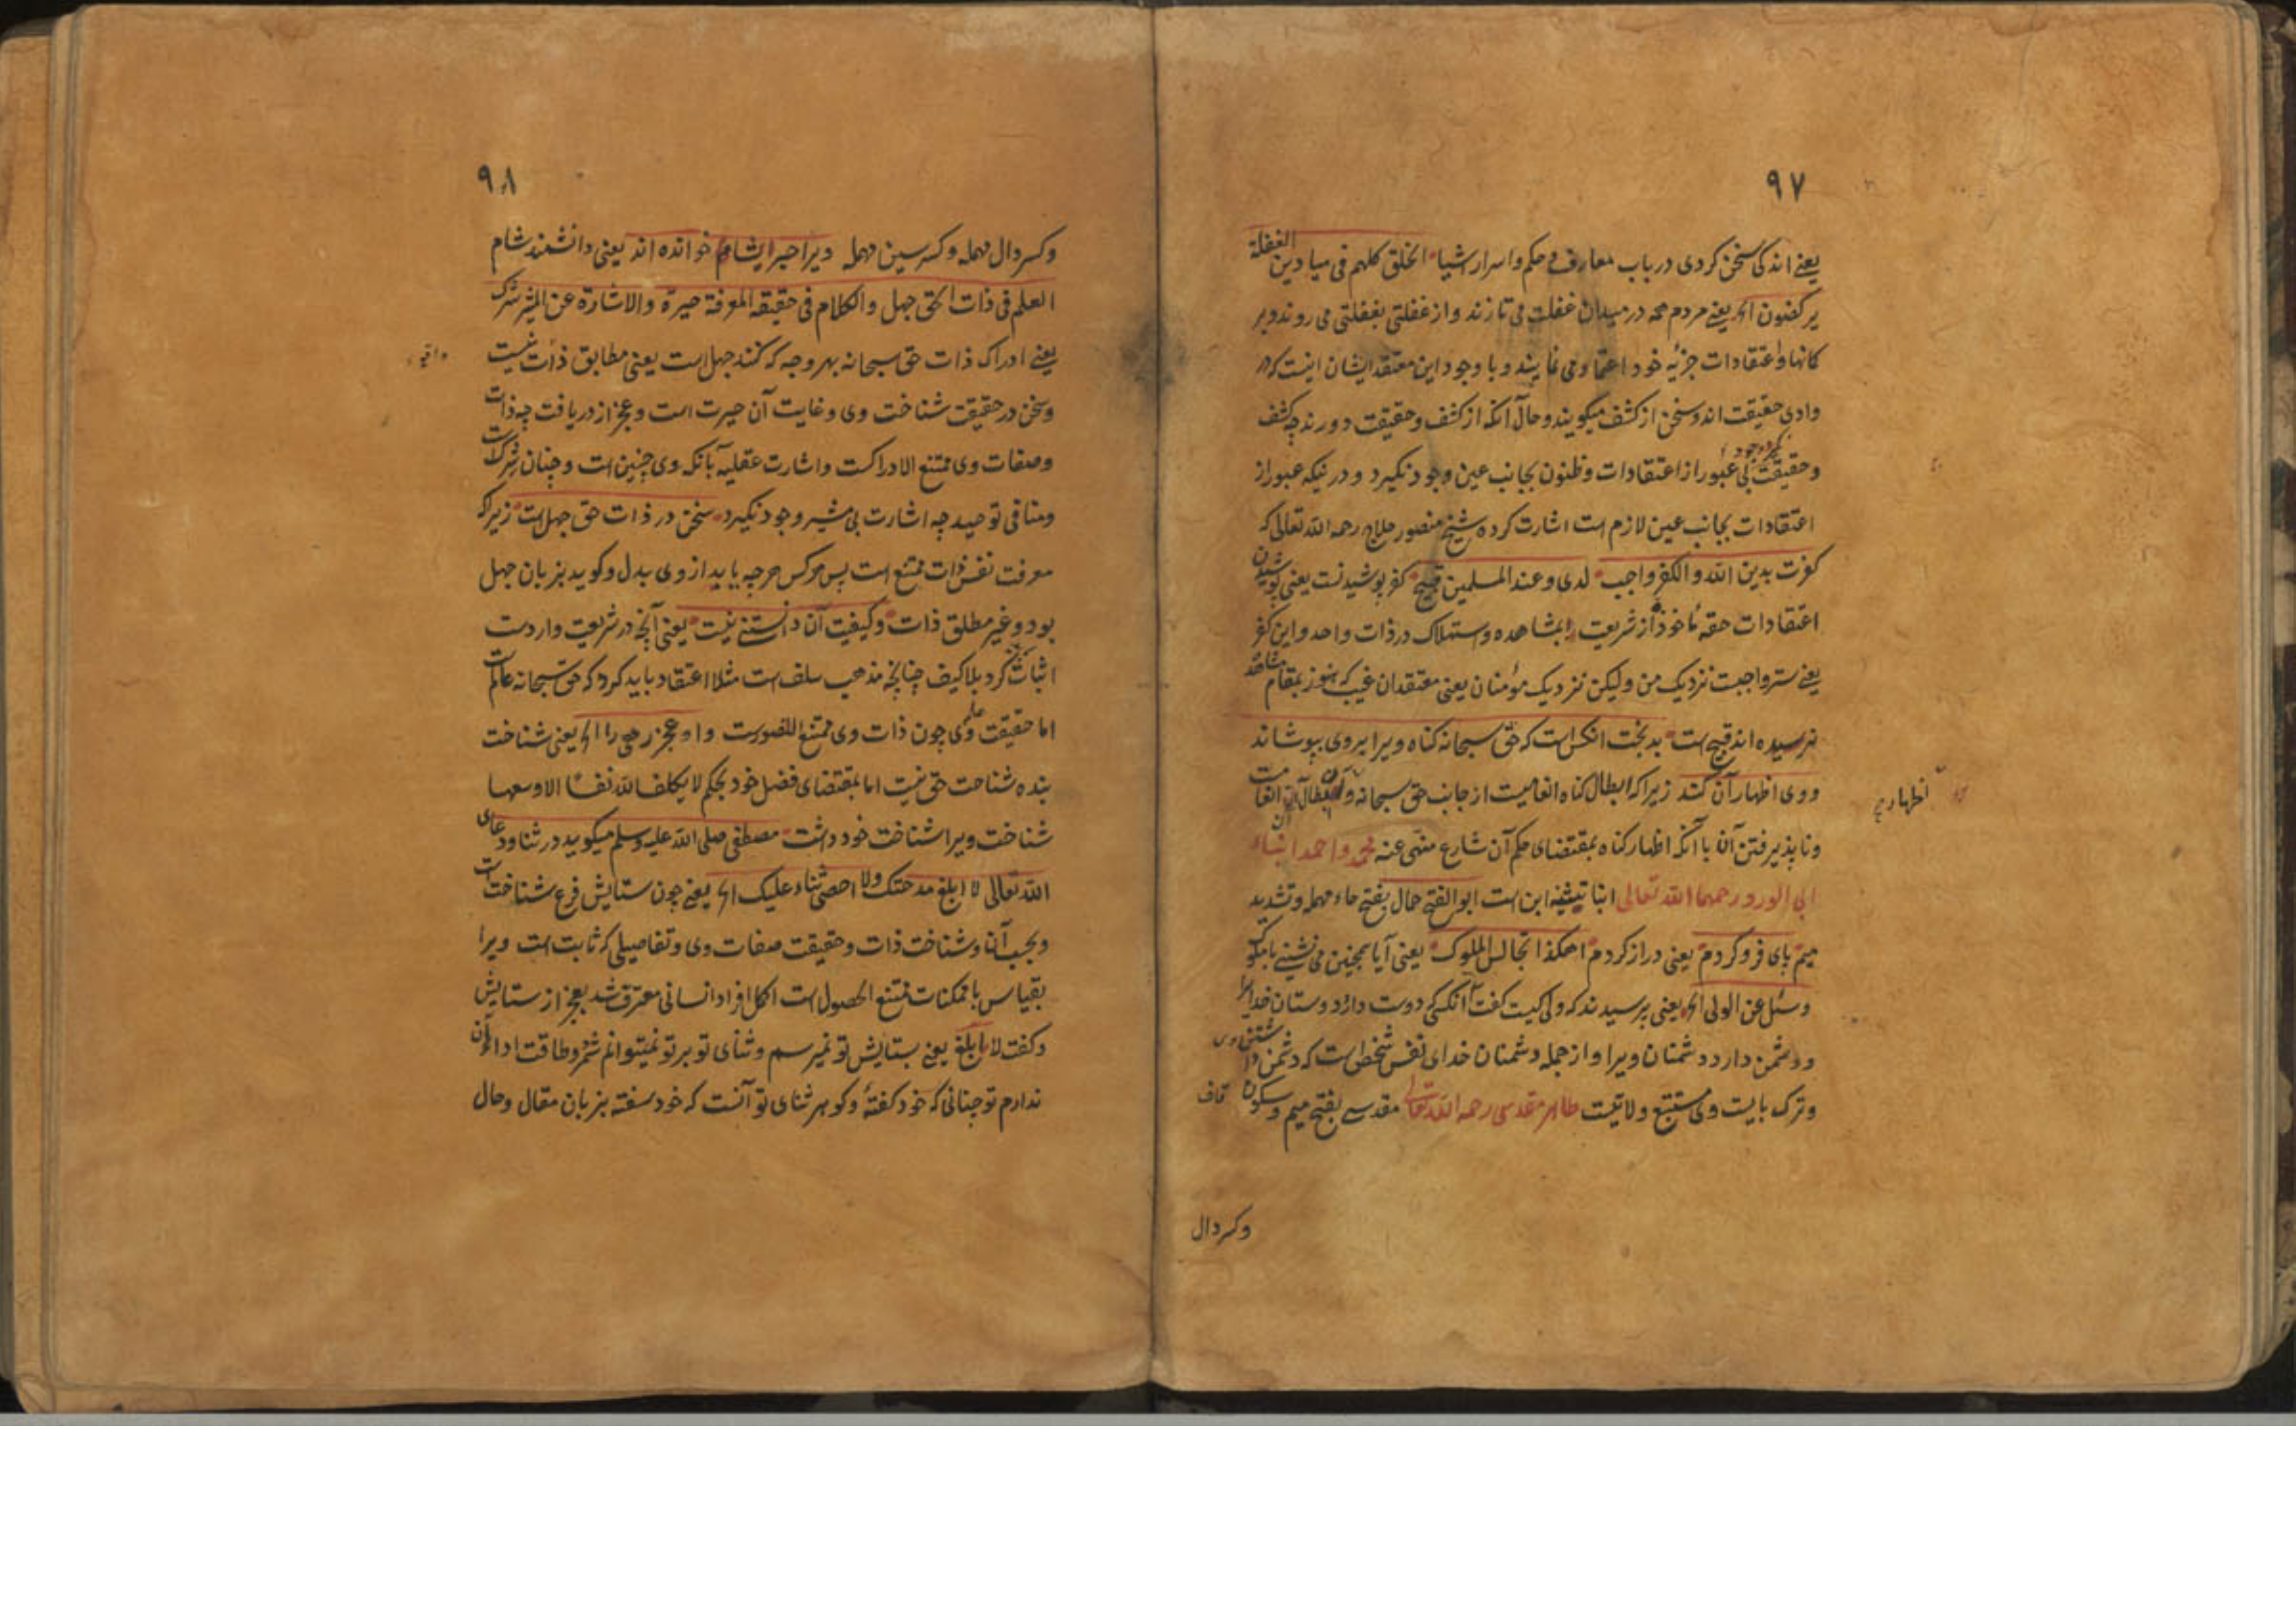 ٩٧
یعنی اندکی سخن کردی در باب معارف و حکم و اسرار اشیا الخلق کلهم فی میادین الغفلة
یرکضون الخ یعنی مردم همه در میدان غفلت می تازند و از غفلتی بغفلتی می روند و بر
کمانها و اعتقادات جزئیه خود اعتماد می نمایند و با وجود این معتقد ایشان اینست که در
وادی حقیقت اند و سخن از کشف میگویند و حال آنکه از کشف و حقیقت دورند چه کشف
و حقیقت بی عبور از اعتقادات و ظنون بجانب عین وجود نگیرد و در نیکه عبور از
اعتقادات بجانب عین لازم است اشارت کرده شیخ منصور حلاج رحمه الله تعالی که
کفرت بدین الله و الکفر واجب لدی و عند المسلمین قبیح کفر پوشیدنست یعنی پوشیدن
اعتقادات حقه مأخوذ از شریعت بمشاهده و استهلاک در ذات واحد و این کفر
یعنی ستر واجبست نزدیک من ولیکن نزدیک مؤمنان یعنی معتقدان غیب که هنوز بمقام مشاهده
نرسیده اند قبیح است بدبخت انکس است که حق سبحانه کناه ویرا بروی بپوشاند
و وی اظهار آن کند زیرا که ابطال کناه انعامیست از جانب حق سبحانه و
اظهار
و ناپذیرفتن آن با آنکه اظهار کناه بمقتضای حکم آن شارع منهی عنه محمد و احمد ابناء
ابی الورد رحمهما الله تعالی ابنا تیثنیه ابن است ابو الفتح حمال بفتح حاء مهمله و تشدید
میم پای فرو کردم یعنی دراز کردم اهکذا تجالس الملوک یعنی آیا همچنین می نشینی با ملوک
و سئل عن الولی الخ یعنی پرسیدند که ولی کیست کفت آنکسی که دوست دارد دوستان خدایرا
و دشمن دارد دشمنان ویرا و از جمله دشمنان خدای نفس شخص است که دشمن
و ترک بایست وی مستتبع ولایتست طاهر مقدسی رحمه الله تعالی مقدسی بفتح میم و سکون قاف
و کسر دال
٩٨
و کسر دال مهمله و کسر سین مهمله ویرا حبر ایشام خوانده اند یعنی دانشمند شام
العلم فی ذات الحق جهل و الکلام فی حقیقة المعرفة حیرة و الاشارة عن المشیر شرک
یعنی ادراک ذات حق سبحانه بهر وجه که کنند جهل است یعنی مطابق ذات نیست
و سخن در حقیقت شناخت وی و غایت آن حیرت است و عجز از دریافت چه ذات
و صفات وی ممتنع الادراکست و اشارت عقلیه بآنکه وی چنین است و چنان شرکست
و منافی توحید چه اشارت بی مشیر وجود نگیرد سخن در ذات حق جهل است زیرا که
معرفت نفس ذات ممتنع است پس هرکس هرچه یابد از وی بدل و کوید بزبان جهل
بود و غیر مطلق ذات و کیفیت آن دانستنی نیست یعنی آنچه در شریعت واردست
اثبات کرد بلاکیف چنانچه مذهب سلف است مثلا اعتقاد باید کرد که حق سبحانه عالمست
اما حقیقت علم وی چون ذات وی ممتنع التصورست و او عجز رهی را الخ یعنی شناخت
بنده شناخت حق نیست اما بمقتضای فضل خود بحکم لا یکلف الله نفسا الا وسعها
شناخت ویرا شناخت خود داشت مصطفی صلی الله علیه و سلم میکوید در ثنا و دعای
الله تعالی لا ابلغ مدحتک و لا احصی ثناء علیک الخ یعنی چون ستایش فرع شناخت
و بحسب آن و شناخت ذات و حقیقت صفات وی و تفاصیلی که ثابت است ویرا
بقیاس با ممکنات ممتنع الحصول است اکمل افراد انسانی معترف شد بعجز از ستایش
و کفت لا ابلغ یعنی بستایش تو نمیرسم و ثنای تو بر تو نمیتوانم شمرد و طاقت اداء آن
ندارم تو چنانی که خود کفتهٔ و کوهر ثنای تو آنست که خود سفته بزبان مقال و حال